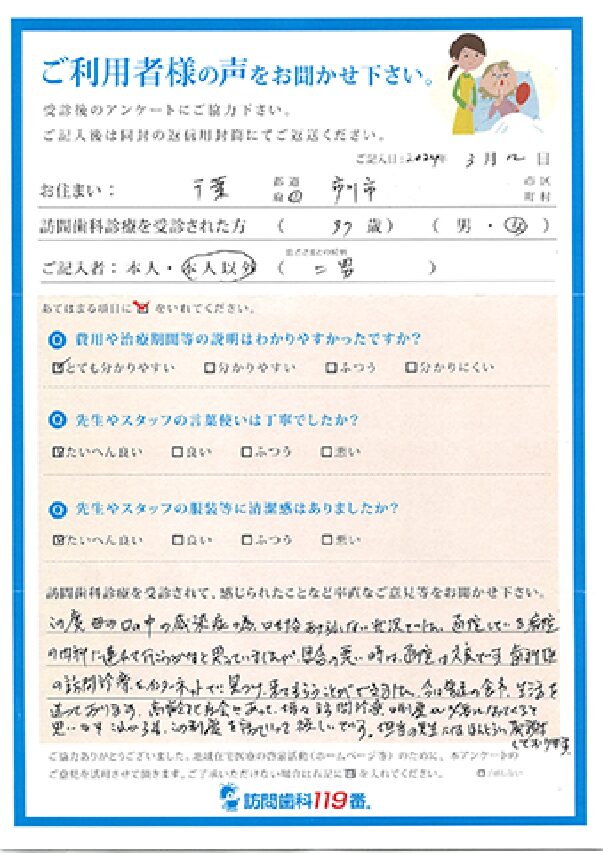 ご利用者様の声をお聞かせ下さい。
受診後のアンケートにご協力下さい。
ご記入後は同封の返信用封筒にてご返送ください。
ご記入日:2024年 3月 12日
お住まい: 千葉 都道府県 市川市 市区町村
訪問歯科診療を受診された方 ( 97 歳) ( 男・女 )
ご記入者:本人・本人以外 ( 二男 )
あてはまる項目に☑をいれてください。
Q 費用や治療期間等の説明はわかりやすかったですか?
☑とても分かりやすい □分かりやすい □ふつう □分かりにくい
Q 先生やスタッフの言葉使いは丁寧でしたか?
☑たいへん良い □良い □ふつう □悪い
Q 先生やスタッフの服装等に清潔感はありましたか?
☑たいへん良い □良い □ふつう □悪い
訪問歯科診療を受診されて、感じられたことなど率直なご意見等をお聞かせ下さい。
この度母の口の中の感染症の為、状況でした。通院している病院
の歯科に連れて行こうかなと思っていましたが、具合の悪い時は通院は大変です。
の訪問診療をインターネットで見つけ、来てもらうことができました。今は普通の食事、生活を
送っております。高齢化社会にあって、訪問診療の制度が必要になってくると
思います。これから、この制度を続けていって欲しいです。担当の先生にはほんとうに感謝
しております。
ご協力ありがとうございました。地域在宅医療の啓蒙活動(ホームページ等)のために、本アンケートの
ご意見を活用させて頂きます。ご了承いただけない場合は右記に☑を入れてください。
訪問歯科119番。